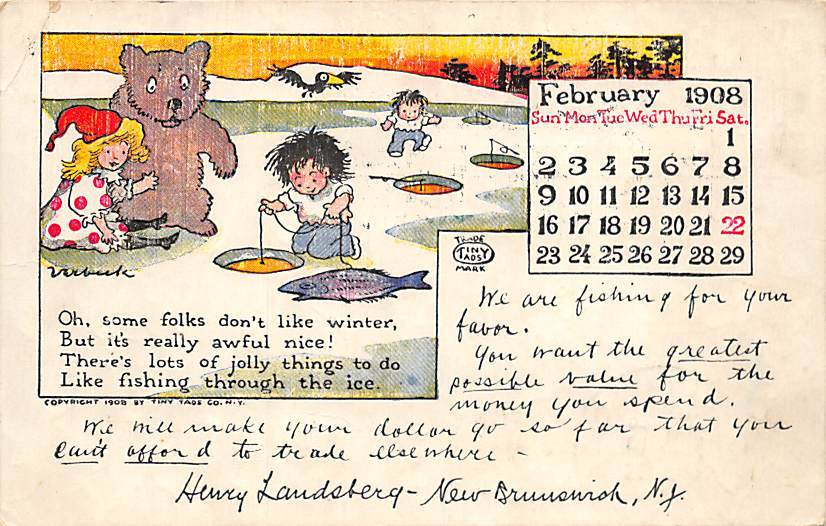 February 1908
Sun Mon Tue Wed Thu Fri Sat.
1
2 3 4 5 6 7 8
9 10 11 12 13 14 15
16 17 18 19 20 21 22
23 24 25 26 27 28 29
TRADE
TINY
TADS
MARK
Verbeek
Oh, some folks don't like winter,
But it's really awful nice!
There's lots of jolly things to do
Like fishing through the ice.
COPYRIGHT 1908 BY TINY TADS CO. N.Y.
We are fishing for your
favor.
You want the greatest
possible value for the
money you spend.
We will make your dollar go so far that you
can't afford to trade elsewhere -
Henry Landsberg - New Brunswick, N.J.